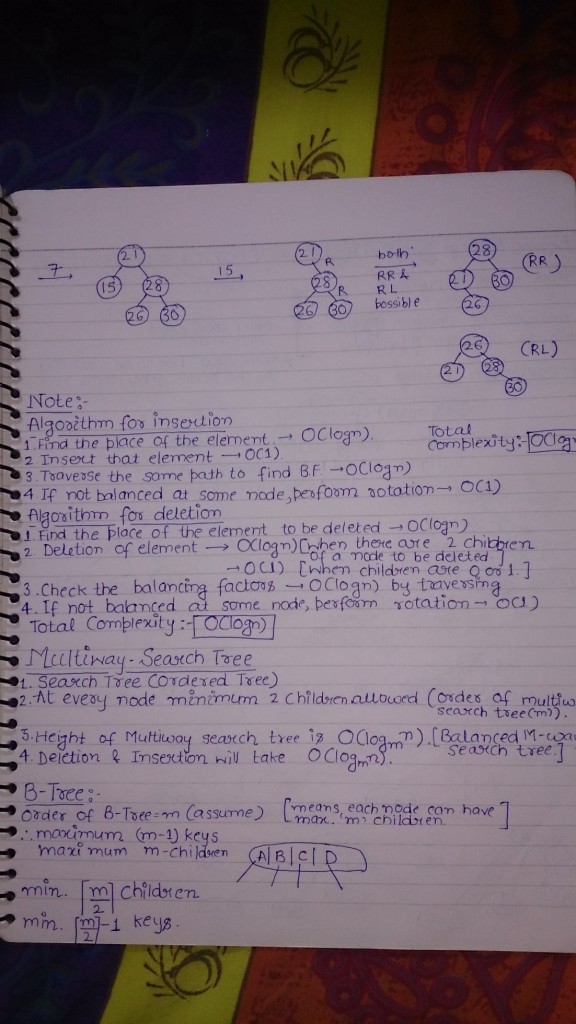 7 →
21
15 28
26 30
15 →
21 R
28 R
26 30
both
RR &
RL
possible
28
21 30
26
(RR)
26
21 28
30
(RL)
Note:-
Algorithm for insertion
1. Find the place of the element → O(logn).
2 Insert that element → O(1)
3. Traverse the same path to find BF → O(logn)
4 If not balanced at some node, perform rotation → O(1)
Total
complexity:- O(log
Algorithm for deletion
1. Find the place of the element to be deleted → O(logn)
2. Deletion of element → O(logn) [when there are 2 children
of a node to be deleted]
→ O(1) [when children are 0 or 1.]
3. Check the balancing factors → O(logn) by traversing
4. If not balanced at some node, perform rotation → O(1)
Total Complexity:- O(logn)
Multiway-Search Tree
1. Search Tree (Ordered Tree)
2. At every node minimum 2 children allowed (order of multiw
search tree(m)).
3. Height of Multiway search tree is O(logₘn). [Balanced M-wa
search tree.]
4. Deletion & Insertion will take O(logₘn).
B-Tree:-
Order of B-Tree=m (assume) [means, each node can have
max. 'm' children]
∴ maximum (m-1) keys
maximum m-children
A|B|C|D
min. ⌈m/2⌉ children
min. ⌈m/2⌉-1 keys.